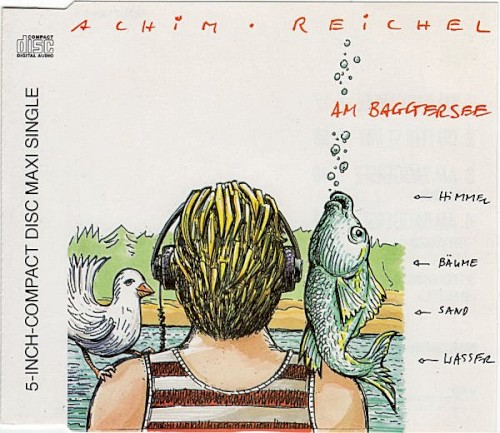 ACHiM · REiCHEL
COMPACT
disc
DIGITAL AUDIO
AM BAGGERSEE
5-INCH-COMPACT DISC MAXI SINGLE
← HiMMEL
← BÄUME
← SAND
← WASSER